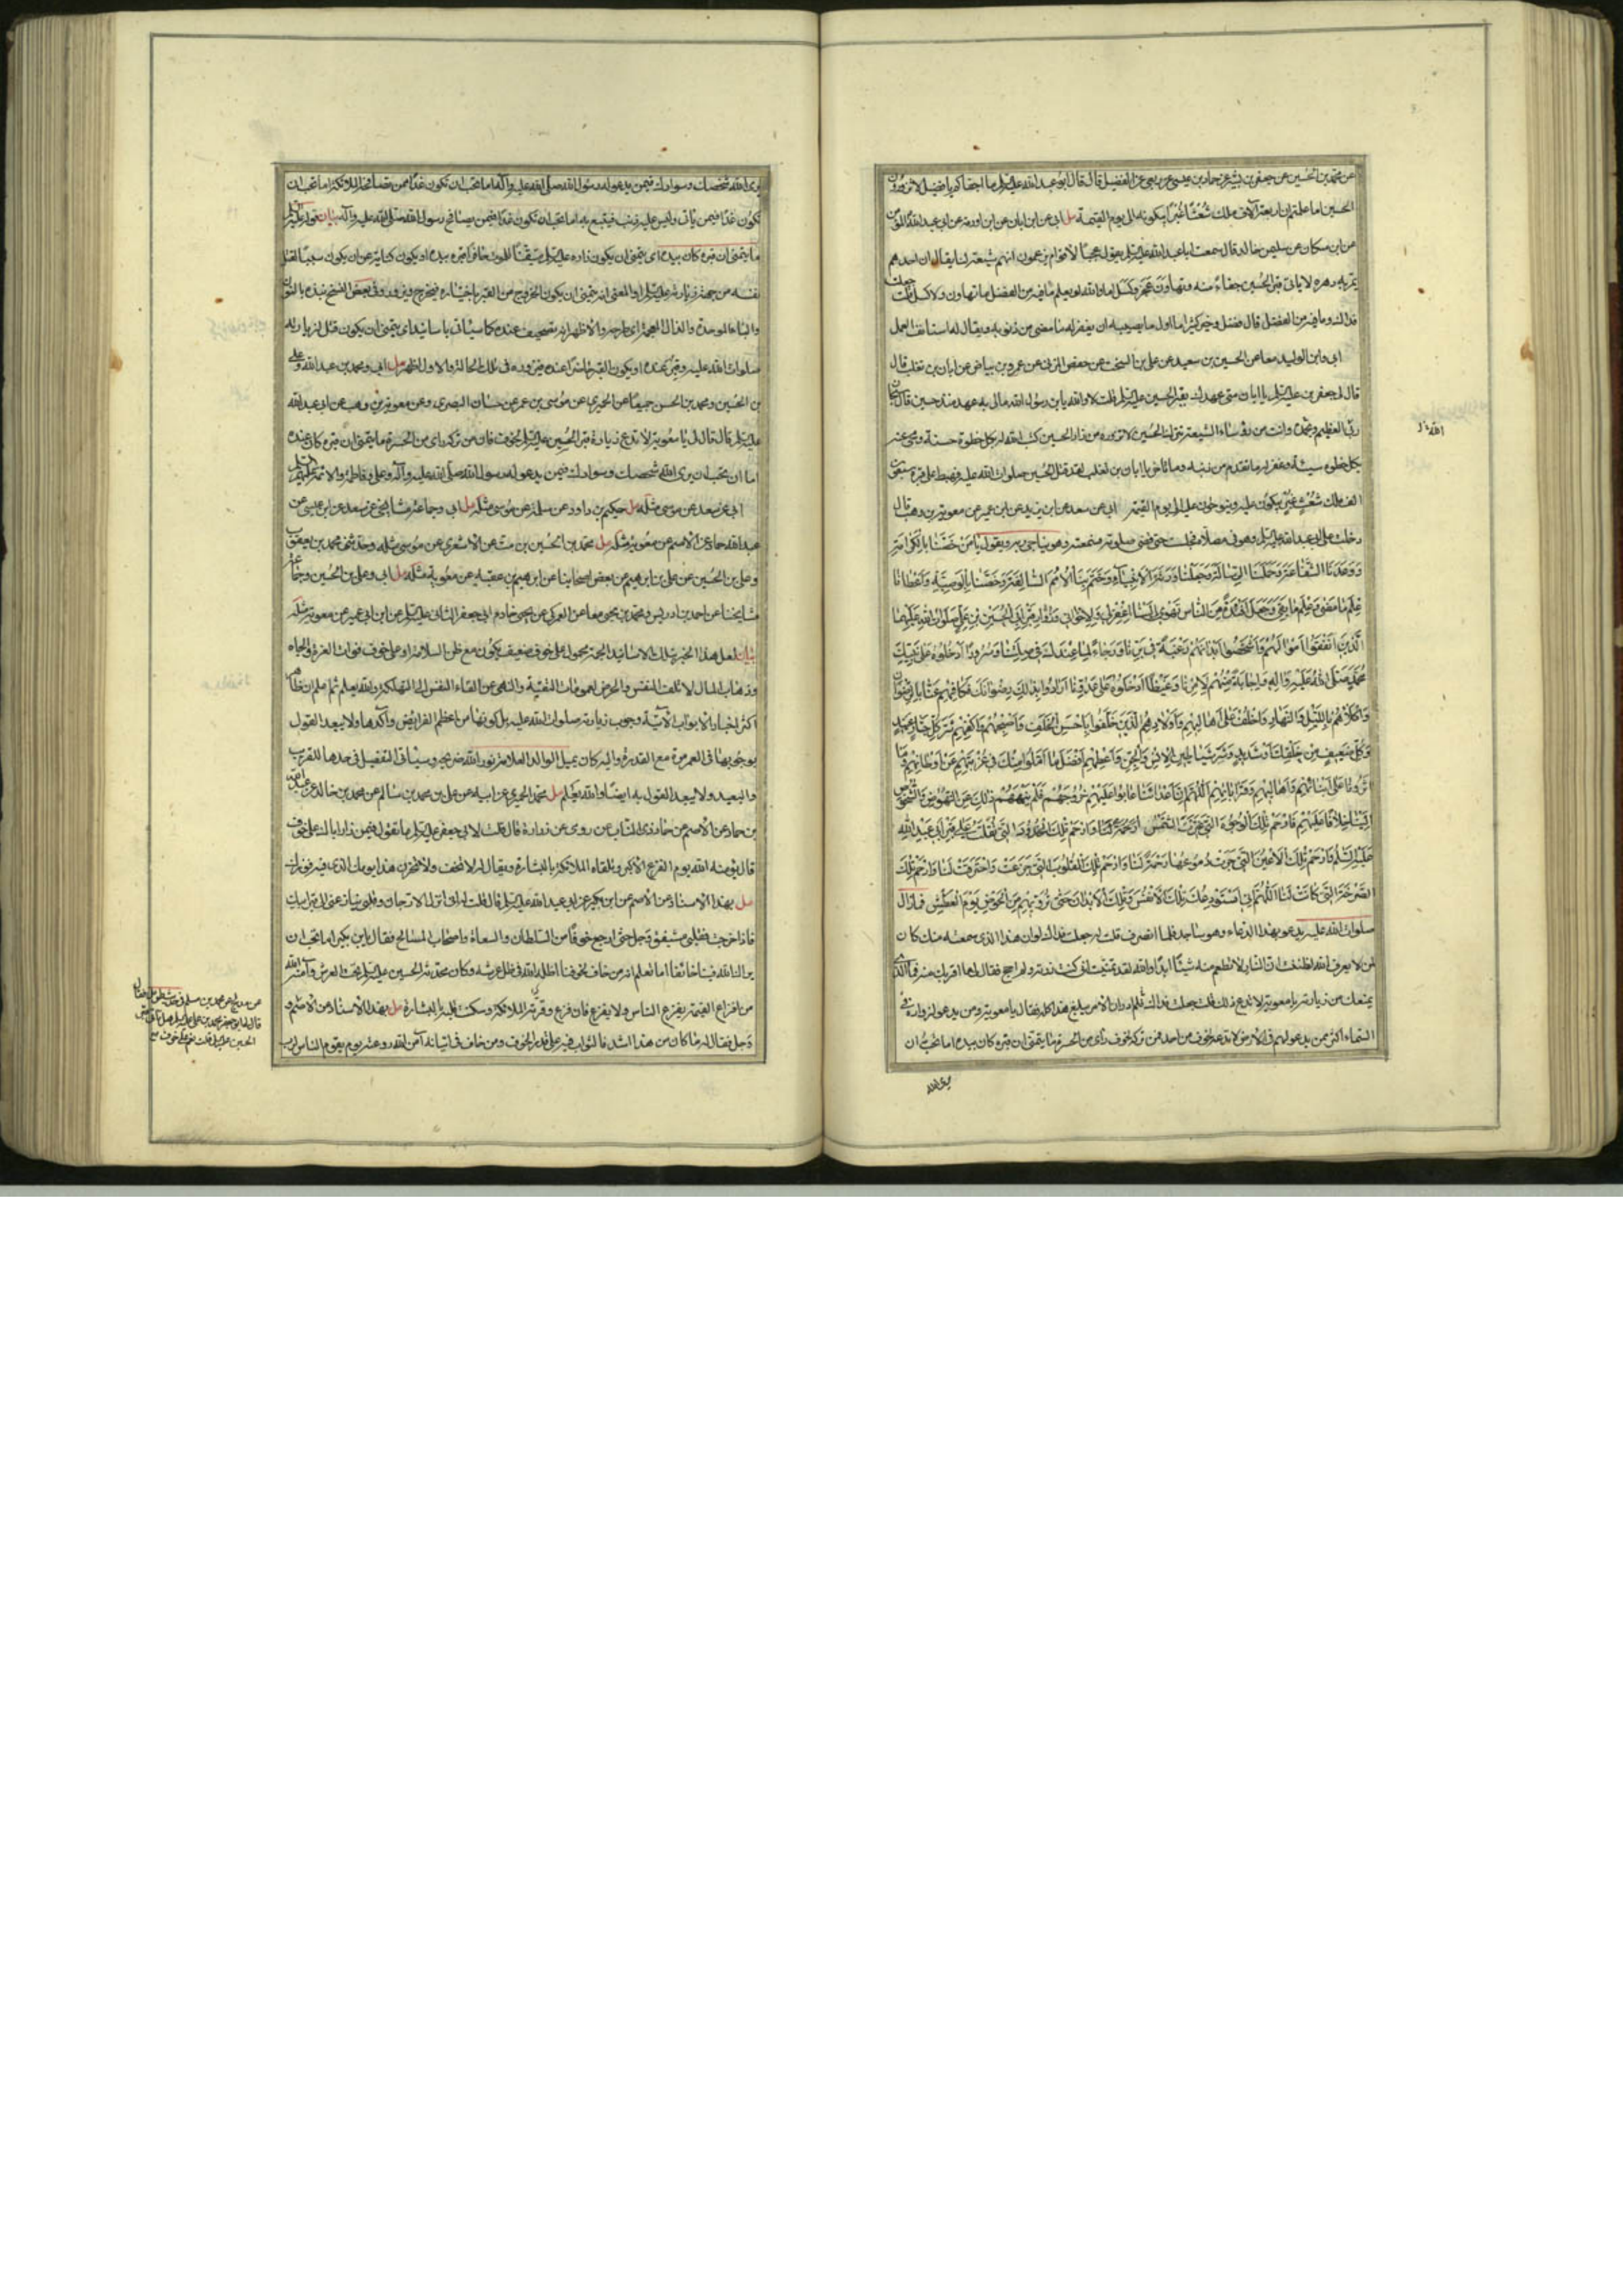 عن محمد بن الحسين عن جعفر بن بشير عن حماد بن عيسى عن ربعي عن الفضيل قال قال ابو عبد الله عليه السلم ما اجفاكم يا فضيل لا تزورون
الحسين اما علمتم ان اربعة آلاف ملك شُعْثًا غُبْرًا يبكونه الى يوم القيمة مل ابي عن ابن ابان عن ابن اورمة عن ابي عبد الله المؤمن
عن ابن مسكان عن سليمن خالد قال سمعت ابا عبد الله عليه السلم يقول عجبًا لاقوام يزعمون انهم شيعة لنا يقال ان احدهم
يمر به دهره لا ياتى قبر الحسين جفاءً منه وتهاون وعجز وكسل اما والله لو يعلم ما فيه من الفضل ما تهاون ولا كسل قلت جعلت
فداك وما فيه من الفضل قال فضل وخير كثير اما اول ما يصيبه ان يغفر له ما مضى من ذنوبه ويقال له استانف العمل
ابي وابن الوليد معا عن الحسين بن سعيد عن علي بن السخت عن حفص المزني عن عمرو بن بياض عن ابان بن تغلب قال
قال لي جعفر بن عليه السلم يا ابان متى عهدك بقبر الحسين عليه السلم قلت لا والله يا بن رسول الله مالي به عهد منذ حين قال سبحان
ربي العظيم وبحمده وانت من رؤساء الشيعة تترك الحسين لا تزوره من زار الحسين كتب الله له بكل خطوة حسنة ومحى عنه
بكل خطوه سيئة وغفر له ما تقدم من ذنبه وما تاخر يا ابان بن تغلب لقد قتل الحسين صلوات الله عليه فهبط على قبره سبعون
الف ملك شُعْثٍ غُبْرٍ يبكون عليه وينوحون عليه الى يوم القيمة ابي عن سعد عن ابن يزيد عن ابن ابي عمير عن معوية بن وهب قال
دخلت على ابي عبد الله عليه السلم وهو في مصلاه فجلست حتى قضى صلوته فسمعته وهو يناجي ربه ويقول يا مَنْ خَصَّنَا بِالْكَرَامَةِ
وَوَعَدَنَا الشَّفَاعَةَ وَحَمَّلَنَا الرِّسَالَةَ وَجَعَلَنَا وَرَثَةَ الْاَنْبِيَآءِ وَخَتَمَ بِنَا الْاُمَمَ السَّالِفَةَ وَخَصَّنَا بِالْوَصِيَّةِ وَاَعْطَانَا
عِلْمَ مَا مَضٰى وَعِلْمَ مَا بَقِيَ وَجَعَلَ اَفْئِدَةً مِنَ النَّاسِ تَهْوِيْ اِلَيْنَا اغْفِرْ لِيْ وَلِاِخْوَانِيْ وَزُوَّارِ قَبْرِ اَبِي الْحُسَيْنِ بْنِ عَلِيٍّ صَلَوَاتُ اللهِ عَلَيْهِمَا
الَّذِيْنَ اَنْفَقُوْا اَمْوَالَهُمْ وَاَشْخَصُوْا اَبْدَانَهُمْ رَغْبَةً فِيْ بِرِّنَا وَرَجَاءً لِمَا عِنْدَكَ فِيْ صِلَتِنَا وَسُرُوْرًا اَدْخَلُوْهُ عَلٰى نَبِيِّكَ
مُحَمَّدٍ صَلَّى اللهُ عَلَيْهِ وَاٰلِهِ وَاِجَابَةً مِنْهُمْ لِاَمْرِنَا وَغَيْظًا اَدْخَلُوْهُ عَلٰى عَدُوِّنَا اَرَادُوْا بِذَالِكَ رِضْوَانَكَ فَكَافِهِمْ عَنَّا بِالرِّضْوَانِ
وَاكْلَاْهُمْ بِاللَّيْلِ وَالنَّهَارِ وَاخْلُفْ عَلٰى اَهَالِيْهِمْ وَاَوْلَادِهِمُ الَّذِيْنَ خُلِّفُوْا بِاَحْسَنِ الْخَلَفِ وَاصْحَبْهُمْ وَاكْفِهِمْ شَرَّ كُلِّ جَبَّارٍ عَنِيْدٍ
وَكُلِّ ضَعِيْفٍ مِنْ خَلْقِكَ وَشَدِيْدٍ وَشَرَّ شَيَاطِيْنِ الْاِنْسِ وَالْجِنِّ وَاَعْطِهِمْ اَفْضَلَ مَا اَمَّلُوْا مِنْكَ فِيْ غُرْبَتِهِمْ عَنْ اَوْطَانِهِمْ وَمَا
اٰثَرُوْنَا عَلٰى اَبْنَائِهِمْ وَاَهَالِيْهِمْ وَقَرَابَاتِهِمْ اَللّٰهُمَّ اِنَّ اَعْدَاءَنَا عَابُوْا عَلَيْهِمْ خُرُوْجَهُمْ فَلَمْ يَنْهَهُمْ ذٰلِكَ عَنِ النُّهُوْضِ وَالشُّخُوْصِ
اِلَيْنَا خِلَافًا عَلَيْهِمْ فَارْحَمْ تِلْكَ الْوُجُوْهَ الَّتِيْ غَيَّرَتْهَا الشَّمْسُ وَارْحَمْ تِلْكَ الْخُدُوْدَ الَّتِيْ تَقَلَّبُ عَلٰى قَبْرِ اَبِيْ عَبْدِ اللهِ
عَلَيْهِ السَّلَامُ وَارْحَمْ تِلْكَ الْاَعْيُنَ الَّتِيْ جَرَتْ دُمُوْعُهَا رَحْمَةً لَنَا وَارْحَمْ تِلْكَ الْقُلُوْبَ الَّتِيْ جَزِعَتْ وَاحْتَرَقَتْ لَنَا وَارْحَمْ تِلْكَ
الصَّرْخَةَ الَّتِيْ كَانَتْ لَنَا اَللّٰهُمَّ اِنِّيْ اَسْتَوْدِعُكَ تِلْكَ الْاَنْفُسَ وَتِلْكَ الْاَبْدَانَ حَتّٰى تُرَوِّيَهُمْ مِنَ الْحَوْضِ يَوْمَ الْعَطَشِ فما زال
صلوات الله عليه يدعو بهذا الدعاء وهو ساجد فلما انصرف قلت له جعلت فداك لو ان هذا الذي سمعته منك كان
لمن لا يعرف الله لظننت ان النار لا تطعم منه شيئًا ابدًا والله لقد تمنيت اني كنت زرته ولم احج فقال لي ما اقربك منه فما الذي
يمنعك من زيارته يا معوية لا تدع ذلك قلت جعلت فداك فلم ادر ان الامر يبلغ هذا كله فقال يا معوية ومن يدعو لزواره في
السماء اكثر ممن يدعو لهم في الارض لا تدعه لخوف من احد فمن تركه لخوف رأى من الحسرة ما يتمنى ان قبره كان بيده اما تحب ان
يرى الله
يرى الله شخصك وسوادك فيمن يدعو له رسول الله صلى الله عليه وآله اما تحب ان تكون غدًا ممن تصافحه الملائكة اما تحب ان
تكون غدًا فيمن يأتي وليس عليه ذنب فيتبع به اما تحب ان تكون غدًا فيمن يصافح رسول الله صلى الله عليه وآله بيان قوله عليه السلم
ما يتمنى ان قبره كان بيده اى يتمنى ان يكون
نفسه من جهة زيارته عليه السلم او المعنى انه يتمنى ان يكون الخروج من القبر باختياره فيخرج ويزوره وفي بعض النسخ نبذه بالنون
والباء الموحدة والذال المعجمة اى طرحه والاظهر انه تصحيف عنده كما سيأتي باسانيد اى يتمنى ان يكون قتل لزيارته
صلوات الله عليه وقبر عنده او يكون القبر حاضرًا عنده فيزوره في تلك الحالة والاول اظهر مل ابي ومحمد بن عبد الله وعلي
بن الحسين ومحمد بن الحسن جميعًا عن الحميري عن موسى بن عمر عن حسان البصري وعن معوية بن وهب عن ابي عبد الله
عليه السلم قال قال لي يا معوية لا تدع زيارة قبر الحسين عليه السلم لخوف فان من تركه راى من الحسرة ما يتمنى ان قبره كان عنده
اما ان تحب ان يرى الله شخصك وسوادك فيمن يدعو له رسول الله صلى الله عليه وآله وعلي وفاطمة والائمة عليهم السلم
ابي عن سعد عن موسى مثله مل حكيم بن داود عن سلمة عن موسى مثله مل ابي وجماعة مشايخي عن سعد عن ابن عيسى عن
عبد الله حماد عن الاصم عن معوية مثله مل محمد بن الحسين بن مت عن الاشعري عن موسى مثله وحدثني محمد بن يعقوب
وعلي بن الحسين عن علي بن ابراهيم عن بعض اصحابنا عن ابراهيم بن عقبه عن معوية مثله مل ابي وعلي بن الحسين وجماعة
مشايخنا عن احمد بن ادريس ومحمد بن يحيى معا عن العمركي عن يحيى خادم ابي جعفر الثاني عليه السلم عن ابن ابي عمير عن معوية مثله
بيان لعل هذا الخبر بتلك الاسانيد الجمة محمول على خوف ضعيف يكون مع ظن السلامة او على خوف فوات العزة والجاه
وذهاب المال لا تلف النفس والعرض لعمومات التقية والنهي عن القاء النفس الى التهلكة والله يعلم ثم اعلم ان ظاهر
اكثر اخبار الابواب الآتية وجوب زيارته صلوات الله عليه بل كونها من اعظم الفرايض وآكدها ولا يبعد القول
بوجوبها في العمر مرة مع القدرة واليه كان يميل الوالد العلامة نور الله ضريحه وسياتى التفصيل في حدها للقريب
والبعيد ولا يبعد القول به ايضًا والله يعلم مل محمد الحميري عن ابيه عن علي بن محمد بن سالم عن محمد بن خالد عن عبد الله
بن حماد عن الاصم عن حماد ذي الناب عن رومى عن زرارة قال قلت لابي جعفر عليه السلم ما تقول فيمن زار اباك على خوف
قال يؤمنه الله يوم الفزع الاكبر ويلقاه الملائكة بالبشارة ويقال له لا تخف ولا تحزن هذا يومك الذى فيه فوزك
مل بهذا الاسناد عن الاصم عن ابن بكير عن ابي عبد الله عليه السلم قال قلت له اني انزل الارجان وقلبي ينازعني الى قبر ابيك
فاذا خرجت فقلبي مشفق وجل حتى ارجع خوفًا من السلطان والسعاة واصحاب المسالح فقال يا بن بكير اما تحب ان
يراك الله فينا خائفًا اما تعلم انه من خاف لخوفنا اظله الله في ظل عرشه وكان محدثه الحسين عليه السلم تحت العرش وآمنه الله
من افزاع القيمة يفزع الناس ولا يفزع فان فزع وقرته الملائكة وسكنت قلبه بالبشارة مل بهذا الاسناد عن الاصم
وجل فقال له ما كان من هذا اشد فالثواب فيه على قدر الخوف ومن خاف في اتيانه آمن الله روعته يوم يقوم الناس لرب
عن مدلج عن محمد بن مسلم في حديث طويل قال
قال لي ابو جعفر محمد بن علي عليه السلم هل تأتي قبر
الحسين عليه السلم قلت نعم على خوف